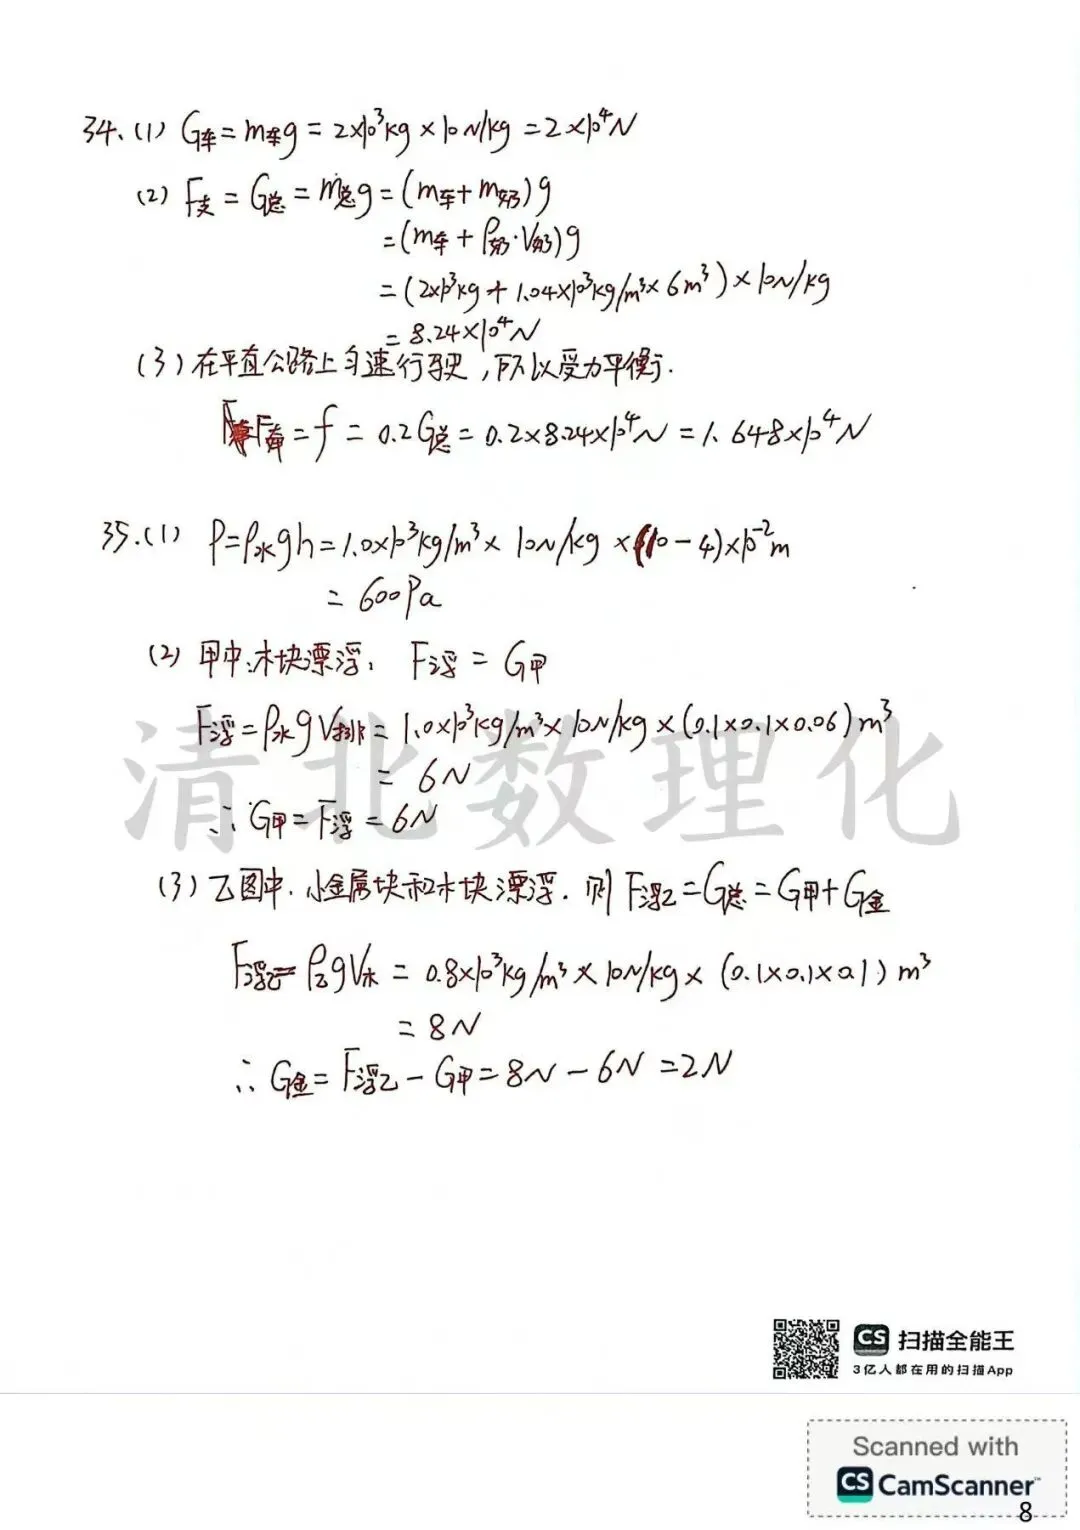 34.(1) G车=m车g=2×10³kg×10N/kg=2×10⁴N
(2) F支=G总=m总g=(m车+m奶)g
=(m车+ρ奶·V奶)g
=(2×10³kg+1.04×10³kg/m³×6m³)×10N/kg
=8.24×10⁴N
(3)在平直公路上匀速行驶,所以受力平衡.
F牵=f=0.2G总=0.2×8.24×10⁴N=1.648×10⁴N
35.(1) P=ρ水gh=1.0×10³kg/m³×10N/kg×(10-4)×10⁻²m
=600Pa
(2) 甲中,木块漂浮, F浮=G甲
F浮=ρ水gV排=1.0×10³kg/m³×10N/kg×(0.1×0.1×0.06)m³
=6N
∴G甲=F浮=6N
清北数理化
(3)乙图中.小金属块和木块漂浮.则F浮乙=G总=G甲+G金
F浮乙=ρ乙gV木=0.8×10³kg/m³×10N/kg×(0.1×0.1×0.1)m³
=8N
∴G金=F浮乙-G甲=8N-6N=2N
CS 扫描全能王
3亿人都在用的扫描App
Scanned with
CS CamScanner™
8